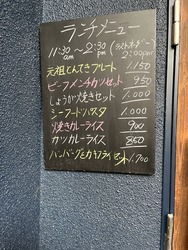 ランチメニュー
11:30am 〜 2:30pm (ラストオーダー 2:00pm)
元祖とんてきプレート 1.150
ビーフメンチカツセット 950
しょうが焼きセット 1.000
シーフードパスタ 1.000
焼きカレーライス 900
カツカレーライス 850
ハンバーグ&カキフライセット 1.700